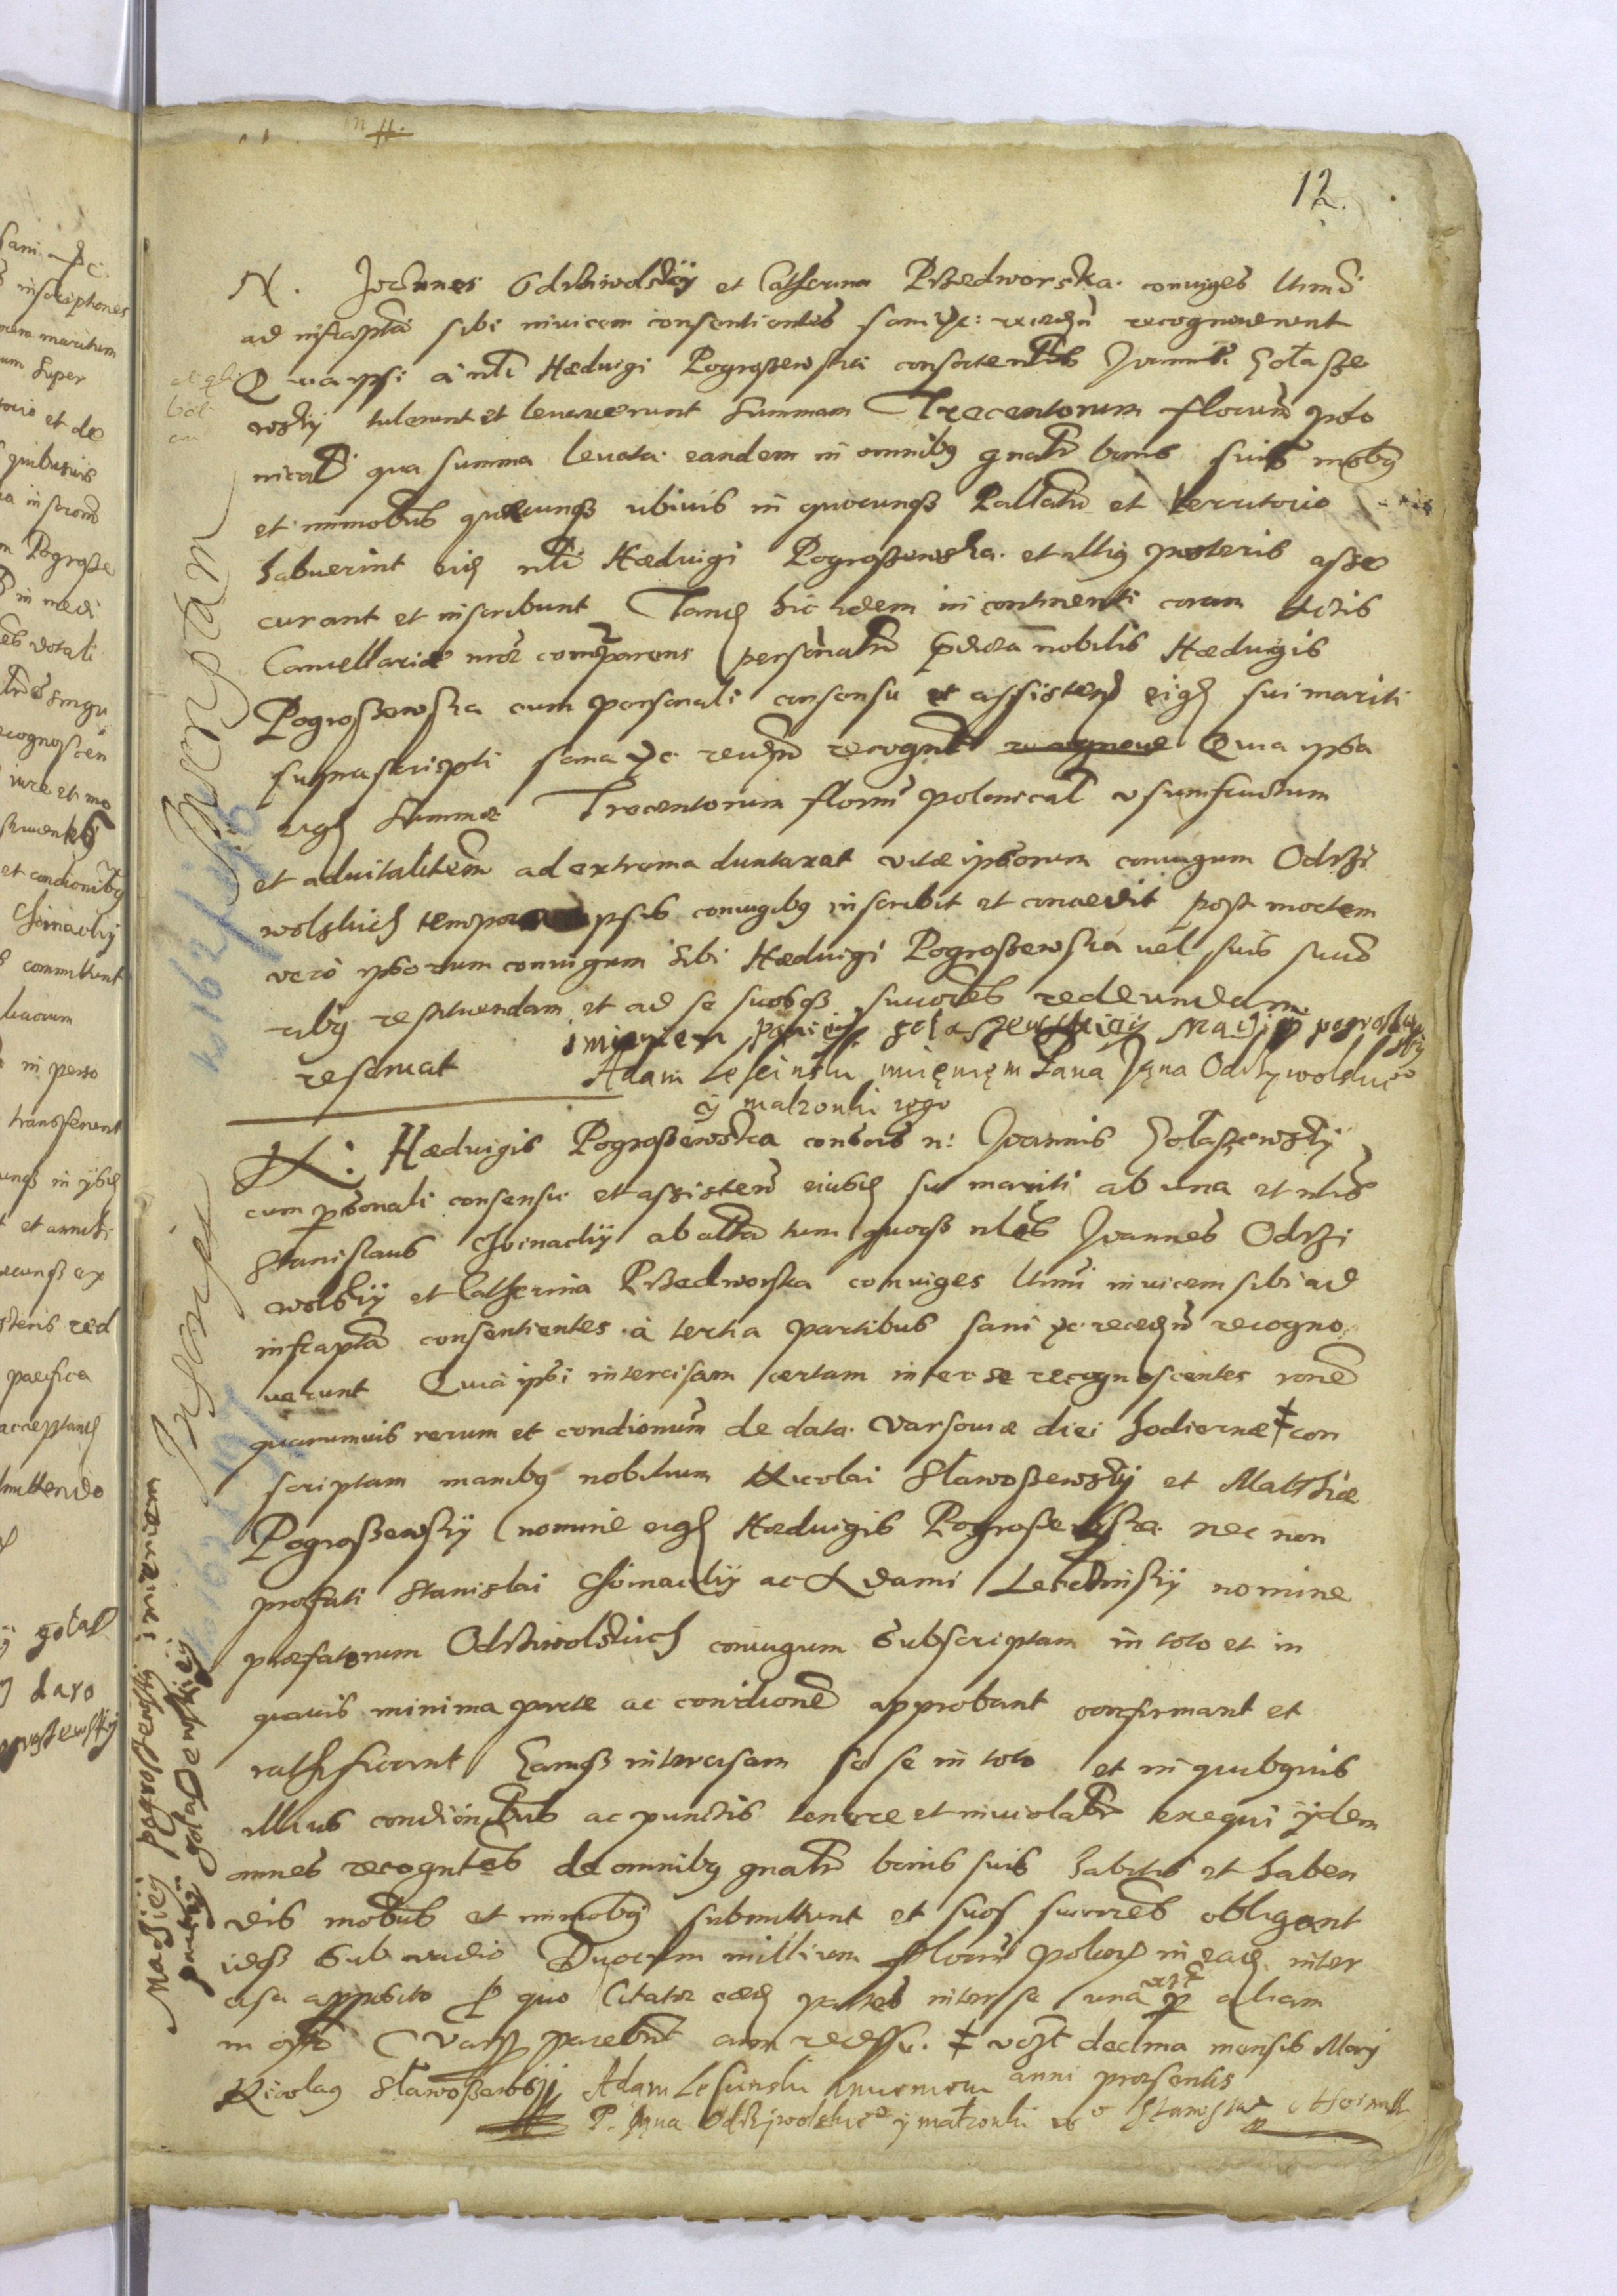 12.
N. Joannes Odrziwolskij et Catherina Przedworska coniuges unanimi
ad infrascripta sibi inuicem consentientes sani etc. recedendo recognouerunt
Quia ipsi a nobili Hæduigi Pogroszewska consorte nobilis Joannis Gołasze
wskij tulerunt et leuauerunt summam Trecentorum florenorum polo
nicalium qua summa leuata eandem in omnibus generaliter bonis suis mobilibus
et immobilibus quæcunque ubiuis in quocunque Pallatinatu et Territorio
habuerint eidem nobili Hæduigi Pogroszewska et illius posteris asse
curant et inscribunt Tandem hic idem in continenti coram Actis
Cancellariæ comparens personaliter nobilis Hæduigis
Pogroszewska cum personali consensu et assistentia eiusdem sui mariti
supra scripti sana etc. recedendo recognouit Quia ipsa
eiusdem summæ Trecentorum florenorum polonicalium usumfructum
et aduitalitatem ad extrema duntaxat vitæ ipsorum coniugum Odrzi
wolskich tempora ipsis coniugibus inscribit et concedit post mortem
vero ipsorum coniugum sibi Hæduigi Pogroszewska uel suis succes
oribus restituendam et ad se suosque successores redeundam
reseruat
imieniem paniey gołaszewskiey Maciey pogroszewsky
Adam Lescinski imięnięm Pana Jąna Odrzywolskiego
y malzonki iego
N: Hæduigis Pogroszewska consors n: Joannis Gołaszewskij
cum personali consensu et assistentia eiusdem sui mariti ab una et nobilis
Stanislaus Choinackij ab altera tum quoque nobiles Joannes Odrzi
wolskij et Catherina Przedworska coniuges unanimi inuicem sibi ad
infrascripta consentientes a tertia partibus sani etc. recedendo recogno
uerunt Quia ipsi intercisam certam inter se recognoscentes ratione
quarumuis rerum et conditionum de data Varsouiæ diei hodiernæ ‡ con
scriptam manibus nobilium Nicolai Sławoszewskij et Matthiæ
Pogroszewskij nomine eiusdem Hæduigis Pogroszewska nec non
prefati Stanislai Choinackij ac Adami Lescinskij nomine
præfatorum Odrziwolskich coniugum subscriptam in toto et in
quauis minima parte ac conditione approbant confirmant et
ratificant Eamque intercisam se se in toto et in quibusuis
illius conditionibus ac punctis tenere et inuiolabiliter exequi ijdem
omnes recognoscentes de omnibus generaliter bonis suis habitis et haben
dis mobilibus et immobilibus submittunt et suos successores obligant
idque sub vadio Duorum millium florenorum polonicalium in eadem inter
cisa apposito pro quo citatæ eædem partes inter se una per aliam
in officio Varsz parebunt cum recessu. ‡ videlicet decima mensis Maij
anni præsentis
Nicolay Sławoszewskij Adam Lescinski imieniem
P. Jąna Odrzywolskiego y małzonki iego Stanisław Choinacki
Inscriptam
Maciey pogroszewsky imieniem
paniey gołaszewskiey